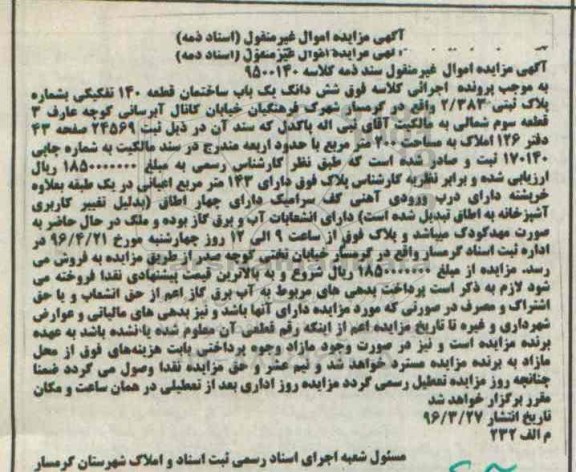 آگهی مزایده اموال غیرمنقول (اسناد ذمه)
آگهی مزایده اموال غیرمنقول سند ذمه کلاسه ۹۵۰۰۱۴۰
به موجب پرونده اجرائی کلاسه فوق شش دانگ یک باب ساختمان قطعه ۱۴۰ تفکیکی بشماره
پلاک ثبتی ۲/۳۸۳ واقع در گرمسار شهرک فرهنگیان خیابان کانال آبرسانی کوچه عارف ۳
قطعه سوم شمالی به مالکیت آقای نبی اله پاکدل که سند آن در ذیل ثبت ۲۴۵۶۹ صفحه ۴۳
دفتر ۱۲۶ املاک به مساحت ۲۰۰ متر مربع با حدود اربعه مندرج در سند مالکیت به شماره چاپی
۱۷۰۱۴۰ ثبت و صادر شده است که طبق نظر کارشناس رسمی به مبلغ ۱۸۵۰۰۰۰۰۰۰ ریال
ارزیابی شده و برابر نظریه کارشناس پلاک فوق دارای ۱۴۳ متر مربع اعیانی در یک طبقه بعلاوه
خرپشته دارای درب ورودی آهنی کف سرامیک دارای چهار اطاق (بدلیل تغییر کاربری
آشپزخانه به اطاق تبدیل شده است) دارای انشعابات آب و برق گاز بوده و ملک در حال حاضر به
صورت مهدکودک میباشد و پلاک فوق از ساعت ۹ الی ۱۲ روز چهارشنبه مورخ ۹۶/۴/۲۱ در
اداره ثبت اسناد گرمسار واقع در گرمسار خیابان تختی کوچه صدر از طریق مزایده به فروش می
رسد. مزایده از مبلغ ۱۸۵۰۰۰۰۰۰۰ ریال شروع و به بالاترین قیمت پیشنهادی نقدا فروخته می
شود لازم به ذکر است پرداخت بدهی های مربوط به آب برق گاز اعم از حق انشعاب و یا حق
اشتراک و مصرف در صورتی که مورد مزایده دارای آنها باشد و نیز بدهی های مالیاتی و عوارض
شهرداری و غیره تا تاریخ مزایده اعم از اینکه رقم قطعی آن معلوم شده یا نشده باشد به عهده
برنده مزایده است و نیز در صورت وجود مازاد وجوه پرداختی بابت هزینه‌های فوق از محل
مازاد به برنده مزایده مسترد خواهد شد و نیم عشر و حق مزایده نقدا وصول می گردد ضمنا
چنانچه روز مزایده تعطیل رسمی گردد مزایده روز اداری بعد از تعطیلی در همان ساعت و مکان
مقرر برگزار خواهد شد
تاریخ انتشار ۹۶/۳/۲۷
م الف ۲۳۲
مسئول شعبه اجرای اسناد رسمی ثبت اسناد و املاک شهرستان گرمسار